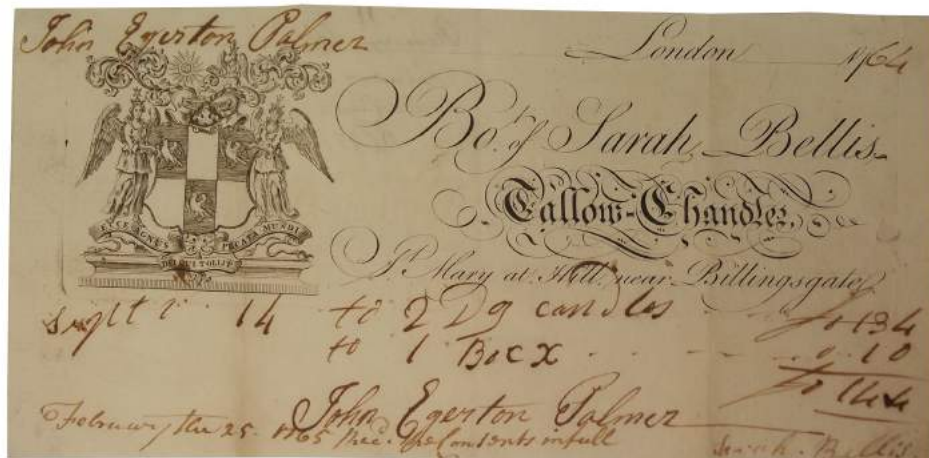 John Egerton Palmer
London 1764
Bo.t of Sarah Bellis
Tallow-Chandler,
St. Mary at Hill near Billingsgate
ECCE AGNUS PECATA MUNDI
DEI QUI TOLLIT
Septt 14 to 2 Dg candles £0 13 4
to 1 Bocx 0 10
£0 14 4
John Egerton Palmer
February the 25. 1765 Rec.d the Contents in full
Sarah Bellis